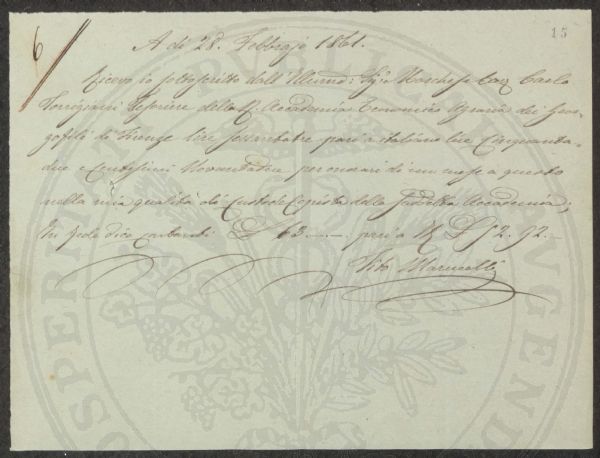 6
15
A dì 28. Febbrajo 1861.
Ricevo io sottoscritto dall' Illmo: Sigr. Marchese Cav. Carlo
Torrigiani Tesoriere della R. Accademia Economico Agraria dei Geor-
gofili di Firenze lire sessantatre pari a italiane lire Cinquanta-
due e Centesimi Novantadue per onorari di un mese a questo
nella mia qualità di Custode Copista della suddetta Accademia;
In fede dico contanti £ 63.--- pari a It. £ 52.92.
Marucelli
PROSPERITATI PVBLICAE AVGENDAE